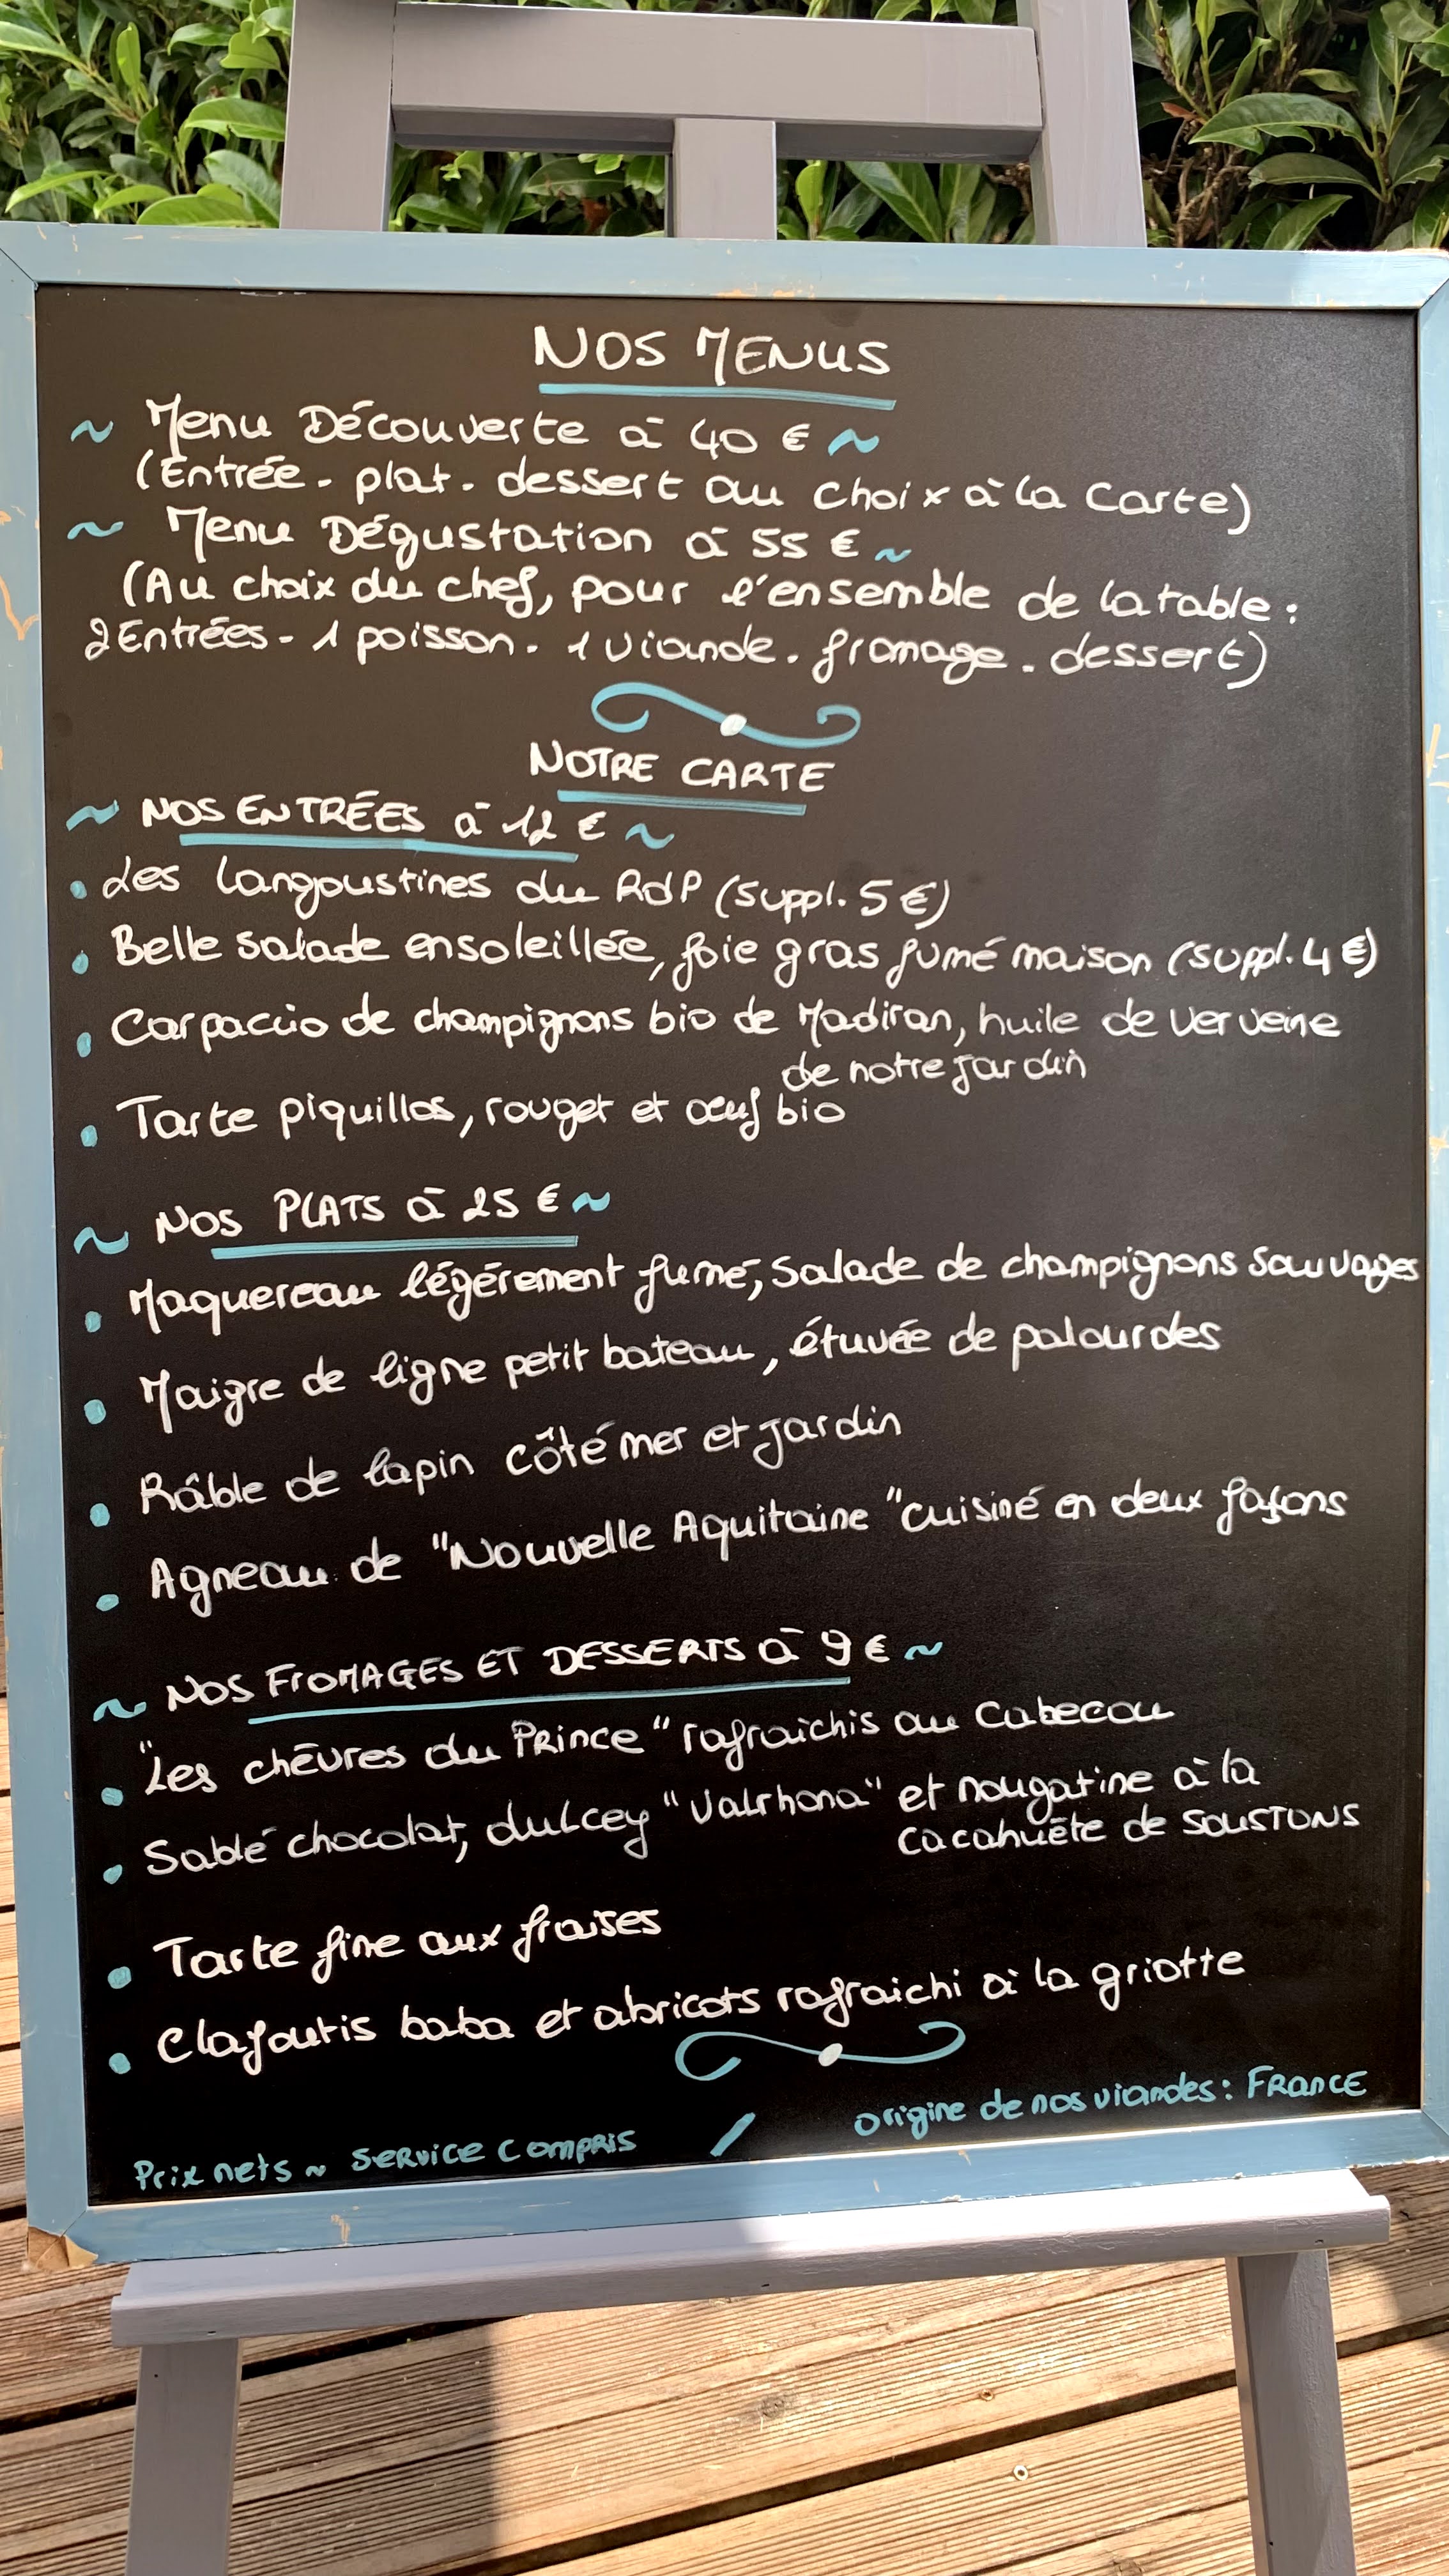 NOS MENUS
~ Menu Découverte à 40 € ~
(Entrée - plat - dessert au choix à la Carte)
~ Menu Dégustation à 55 € ~
(Au choix du chef, pour l'ensemble de la table :
2 Entrées - 1 poisson - 1 viande - fromage - dessert)
NOTRE CARTE
~ NOS ENTRÉES à 12 € ~
• Les langoustines du RdP (suppl. 5 €)
• Belle salade ensoleillée, foie gras fumé maison (suppl. 4 €)
• Carpaccio de champignons bio de Madiran, huile de verveine
de notre jardin
• Tarte piquillos, rouget et oeuf bio
~ NOS PLATS à 25 € ~
• Maquereau légérement fumé, salade de champignons sauvages
• Maigre de ligne petit bateau, étuvée de palourdes
• Râble de lapin côté mer et jardin
• Agneau de "Nouvelle Aquitaine" cuisiné en deux façons
~ NOS FROMAGES ET DESSERTS à 9 € ~
• "Les chèvres du Prince" rafraichis au Cabecou
• Sablé chocolat, dulcey "Valrhona" et nougatine à la
cacahuète de SOUSTONS
• Tarte fine aux fraises
• Clafoutis baba et abricots rafraichi à la griotte
Prix nets ~ Service Compris / origine de nos viandes : FRANCE